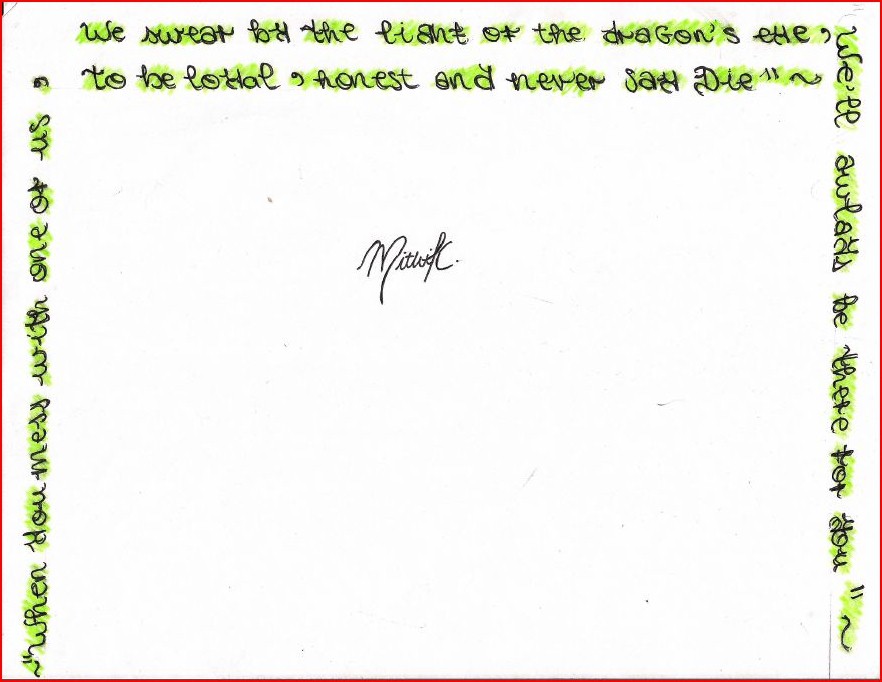 ~"When you mess with one of us,
We swear by the light of the dragon's eye,
to be loyal, honest and never say Die"~
"We'll always be there for you"~